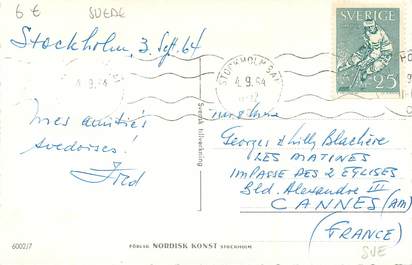 6 € SUEDE
Stockholm, 3 Sept. 64
STOCKHOLM BAN
4.9.64
4.9.64
SVERIGE
25
mes amitiés
svedoises!
Fred
Svensk tillverkning
Georges & Lilly Blachère
LES MATINES
IMPASSE DES 2 EGLISES
Bld. Alexandre III
CANNES (AM)
(FRANCE)
SUE
6002/7
FÖRLAG NORDISK KONST STOCKHOLM